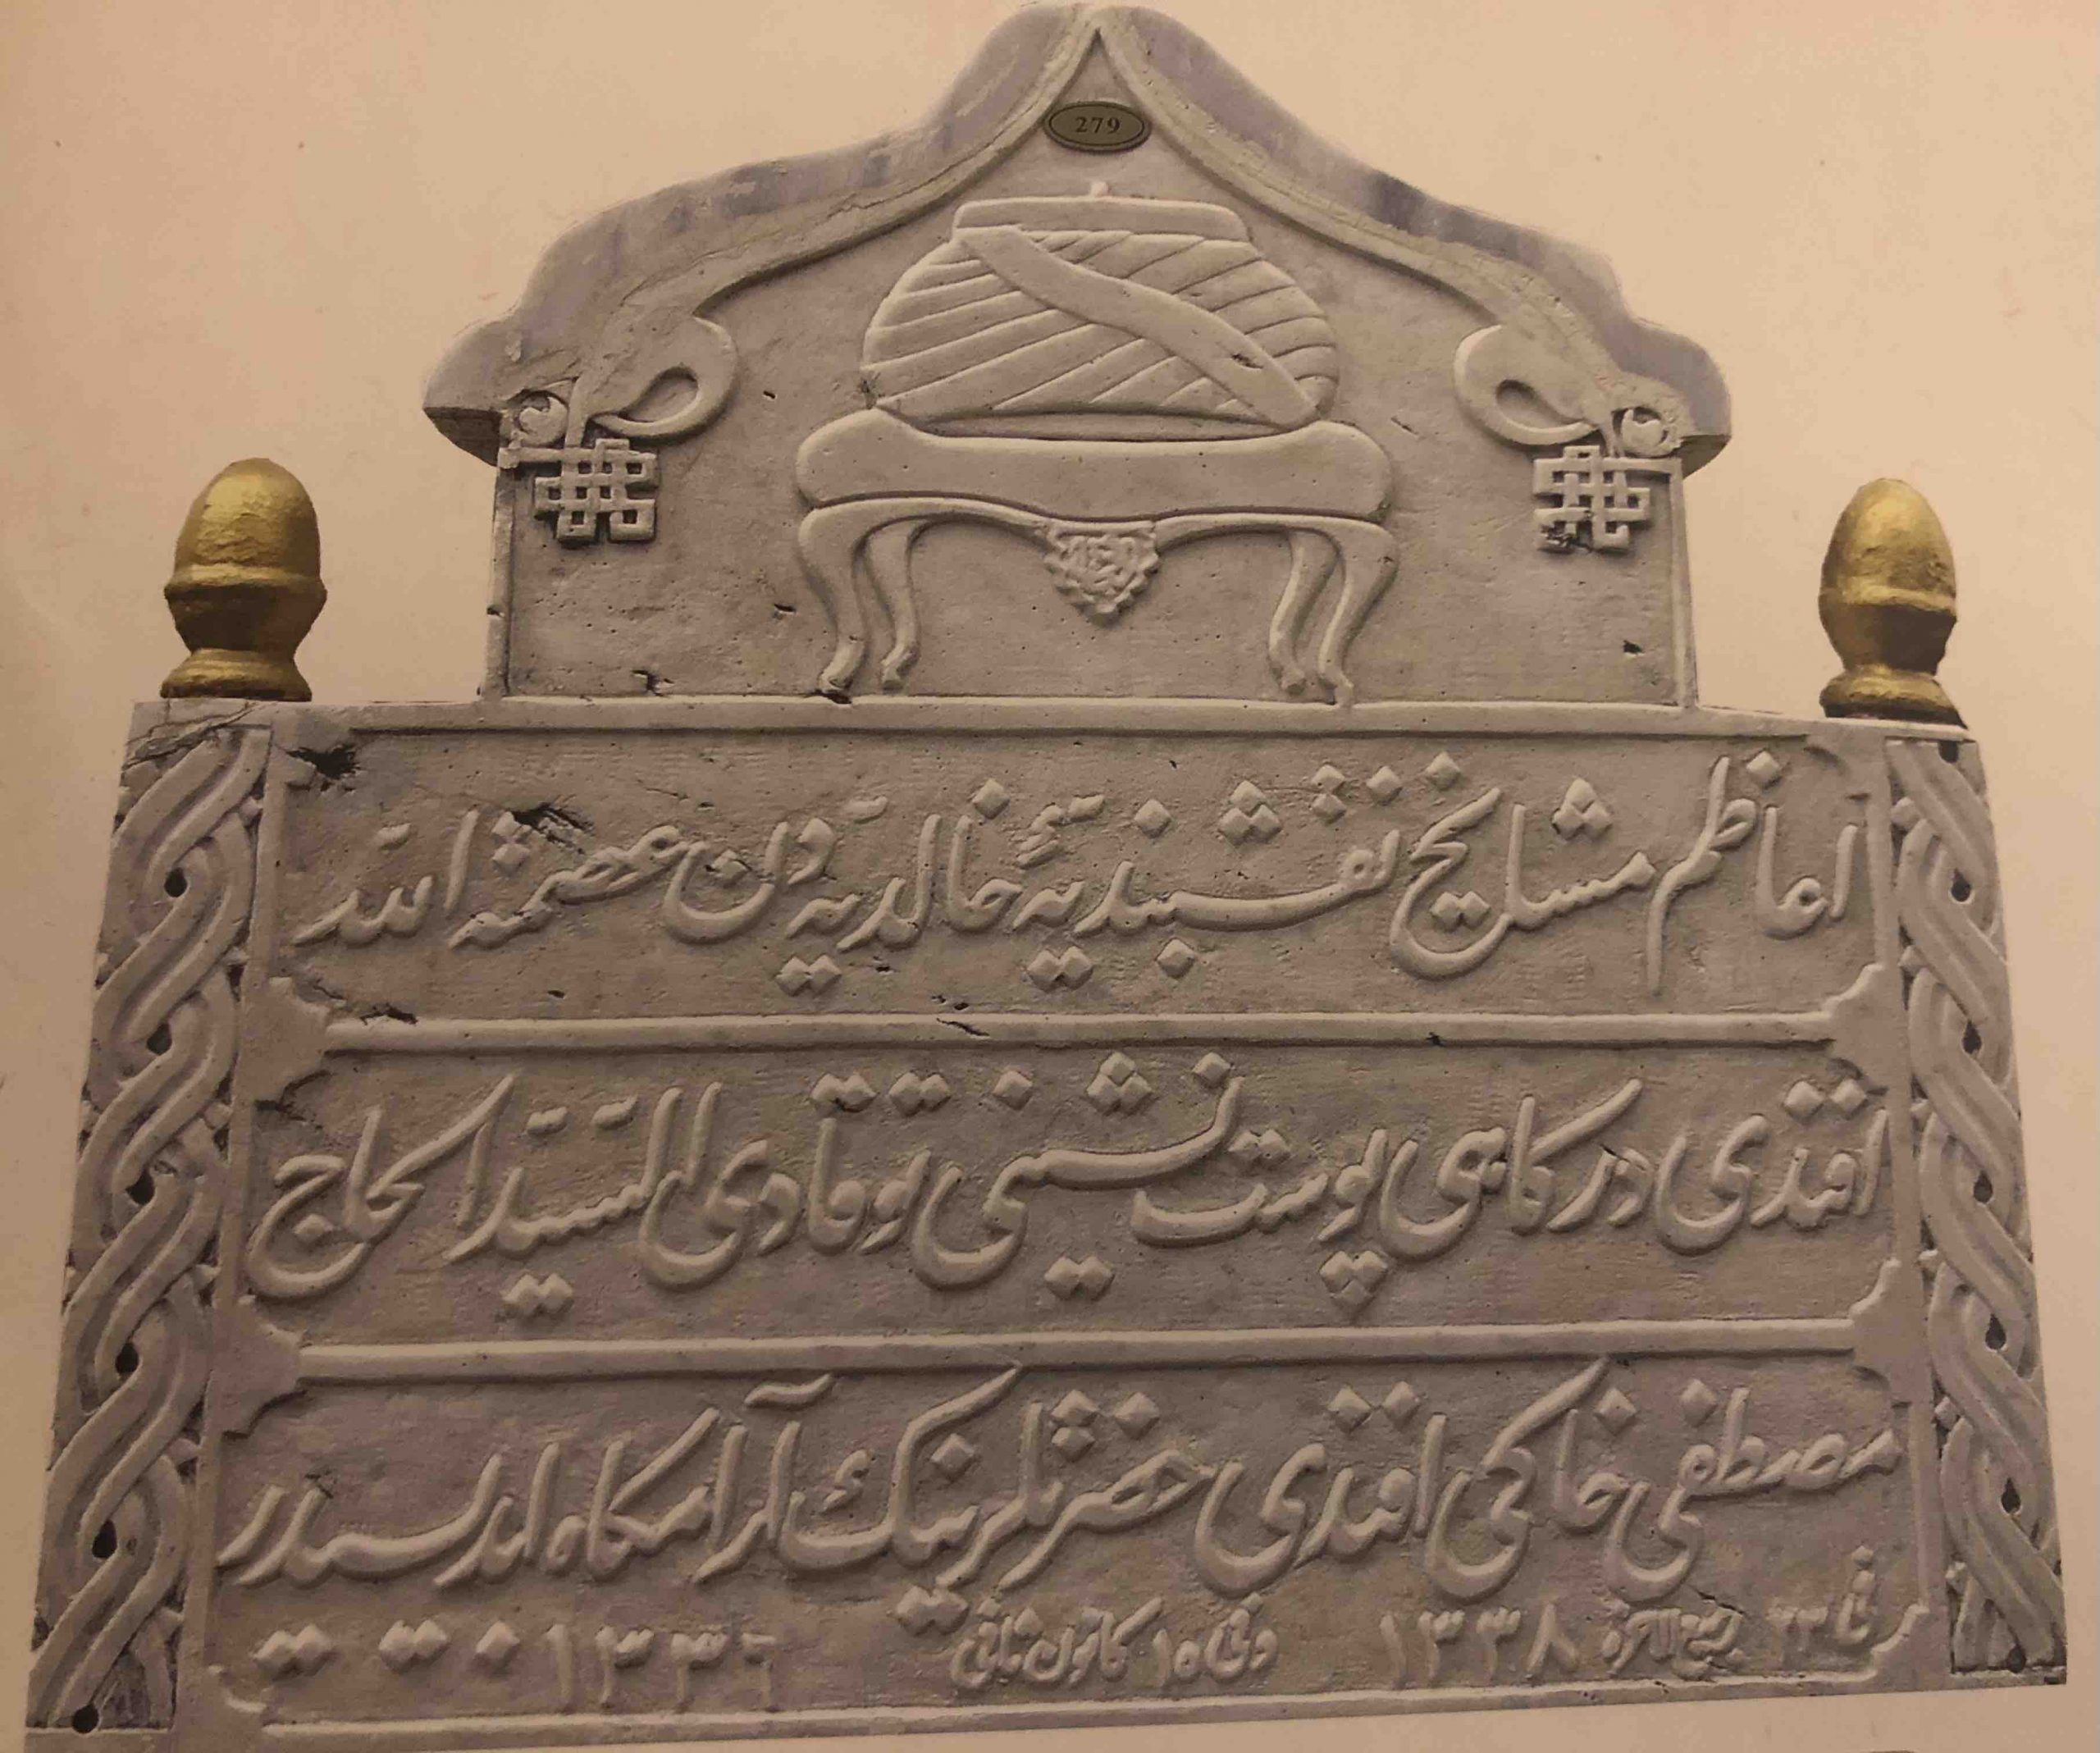 279
اعاظم مشایخ نقشبندیهٔ خالدیه دن عصمة الله
افندی درکاهی پوست نشینی توقادی السید الحاج
مصطفی خاکی افندی حضرتلرینک آرامکاه ابدیسیدر
فی ٢٣ ربیع الآخر ١٣٣٨ وفی ١٥ کانون ثانی ١٣٣٦